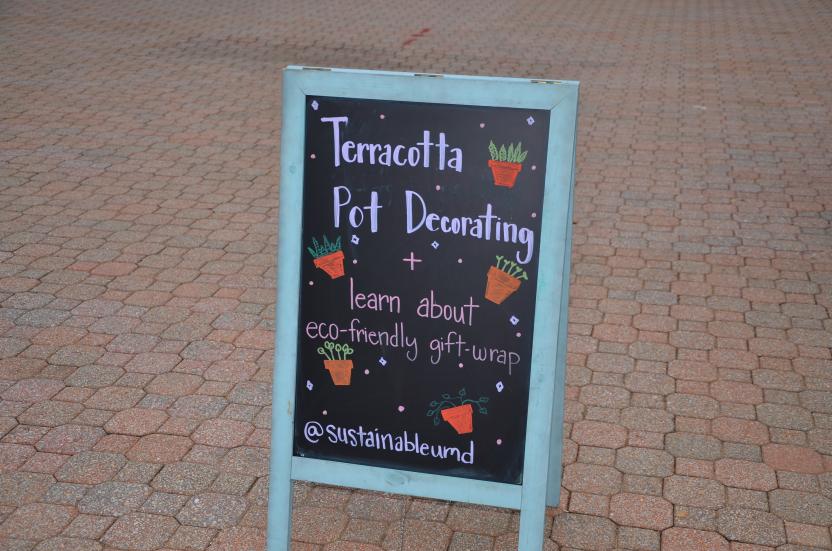 Terracotta
Pot Decorating
+
learn about
eco-friendly gift-wrap
@sustainableumd